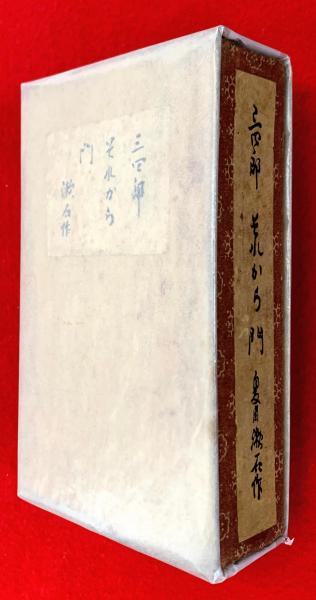 三四郎
それから
門
漱石作
三四郎 それから 門 夏目漱石作